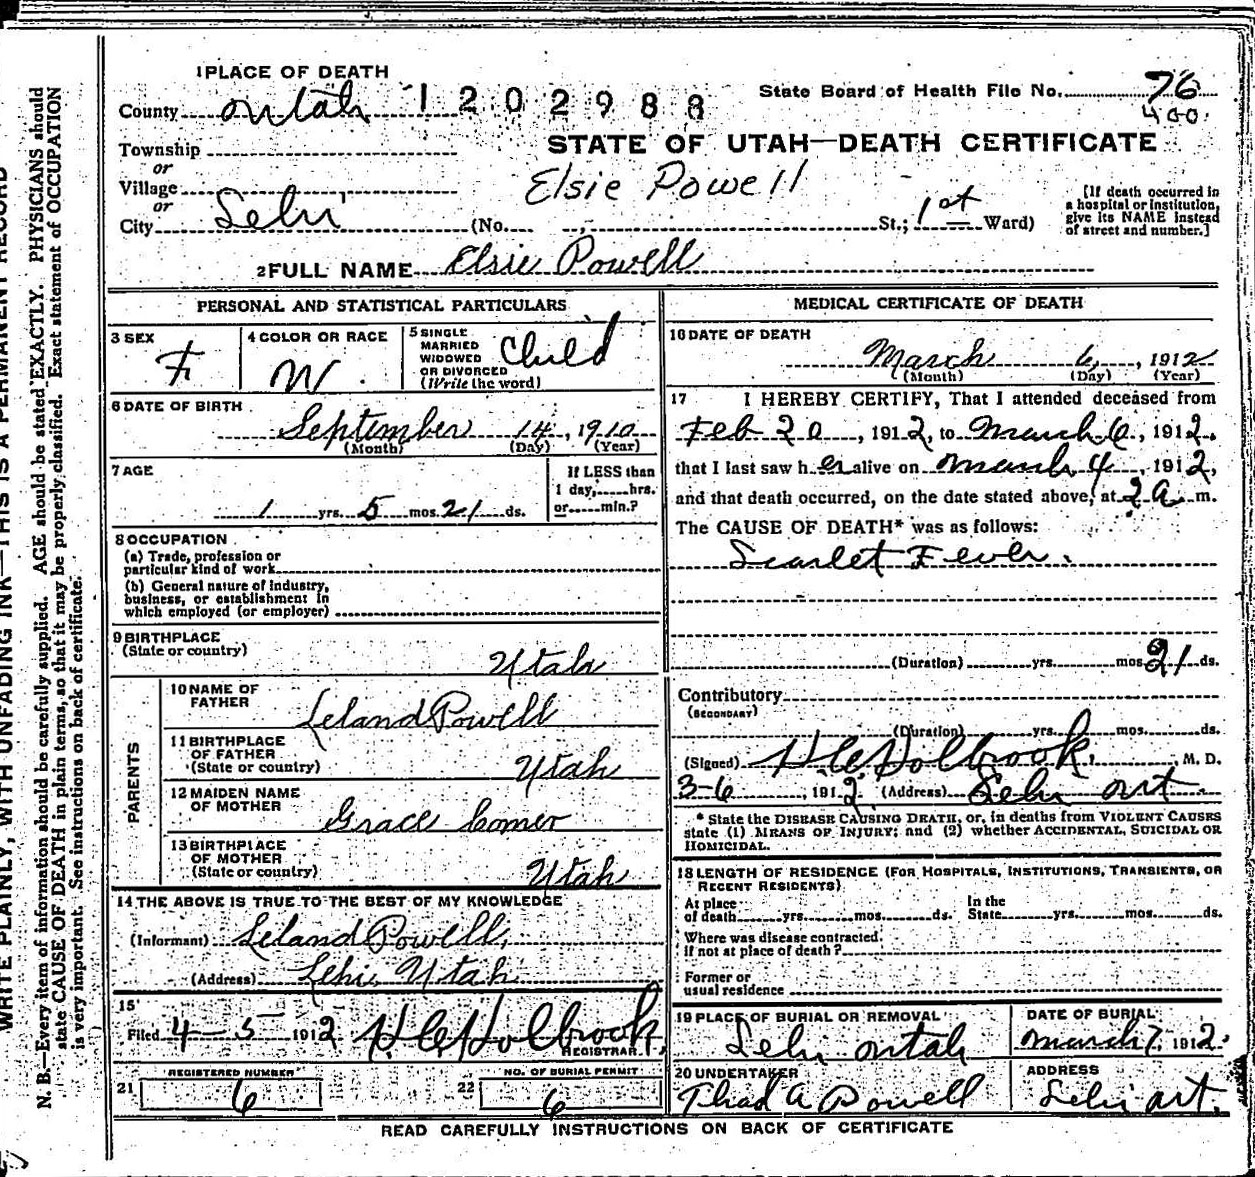 1 PLACE OF DEATH
County Utah 1202988
State Board of Health File No. 76
400.
Township
or
Village
or
City Lehi (No. St.; 1st Ward)
STATE OF UTAH—DEATH CERTIFICATE
Elsie Powell
[If death occurred in
a hospital or institution,
give its NAME instead
of street and number.]
2 FULL NAME Elsie Powell
PERSONAL AND STATISTICAL PARTICULARS
3 SEX
F
4 COLOR OR RACE
W.
5 SINGLE
MARRIED
WIDOWED
OR DIVORCED
(Write the word)
Child
6 DATE OF BIRTH
September 14, 1910
(Month) (Day) (Year)
7 AGE
1 yrs. 5 mos. 21 ds.
If LESS than
1 day, hrs.
or min.?
8 OCCUPATION
(a) Trade, profession or
particular kind of work
(b) General nature of industry,
business, or establishment in
which employed (or employer)
9 BIRTHPLACE
(State or country)
Utah
PARENTS
10 NAME OF
FATHER
Leland Powell
11 BIRTHPLACE
OF FATHER
(State or country)
Utah
12 MAIDEN NAME
OF MOTHER
Grace Comer
13 BIRTHPLACE
OF MOTHER
(State or country)
Utah
14 THE ABOVE IS TRUE TO THE BEST OF MY KNOWLEDGE
(Informant) Leland Powell,
(Address) Lehi Utah
15
Filed 4-5 1912 Holbrook
REGISTRAR.
21 REGISTERED NUMBER
6
22 NO. OF BURIAL PERMIT
6
MEDICAL CERTIFICATE OF DEATH
16 DATE OF DEATH
March 6, 1912
(Month) (Day) (Year)
17 I HEREBY CERTIFY, That I attended deceased from
Feb 20, 1912, to March 6, 1912.
that I last saw her alive on March 4, 1912,
and that death occurred, on the date stated above, at 2 a. m.
The CAUSE OF DEATH* was as follows:
Scarlet Fever.
(Duration) yrs. mos. 21 ds.
Contributory
(SECONDARY)
(Duration) yrs. mos. ds.
(Signed) Holbrook, M. D.
3-6, 1912. (Address) Lehi Ut.
* State the DISEASE CAUSING DEATH, or, in deaths from VIOLENT CAUSES
state (1) MEANS OF INJURY; and (2) whether ACCIDENTAL, SUICIDAL OR
HOMICIDAL.
18 LENGTH OF RESIDENCE (FOR HOSPITALS, INSTITUTIONS, TRANSIENTS, OR
RECENT RESIDENTS)
At place
of death yrs. mos. ds.
In the
State yrs. mos. ds.
Where was disease contracted.
if not at place of death?
Former or
usual residence
19 PLACE OF BURIAL OR REMOVAL
Lehi Utah
DATE OF BURIAL
March 7, 1912.
20 UNDERTAKER
Thad A Powell
ADDRESS
Lehi Ut.
READ CAREFULLY INSTRUCTIONS ON BACK OF CERTIFICATE
WRITE PLAINLY, WITH UNFADING INK—THIS IS A PERMANENT RECORD
N. B.—Every item of information should be carefully supplied. AGE should be stated EXACTLY. PHYSICIANS should
state CAUSE OF DEATH in plain terms, so that it may be properly classified. Exact statement of OCCUPATION
is very important. See instructions on back of certificate.